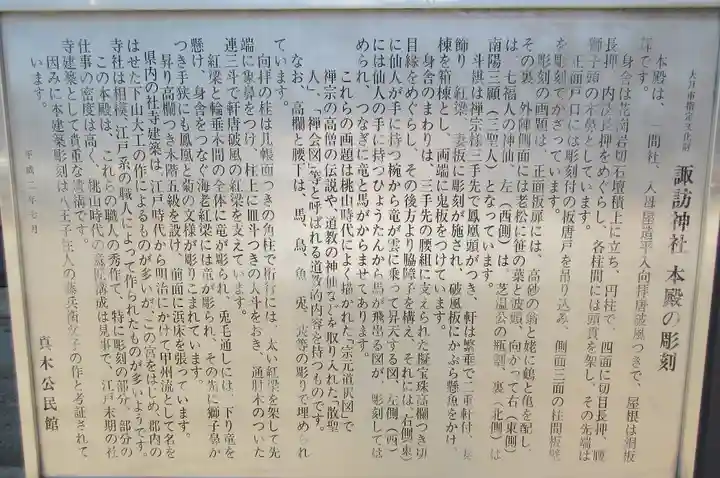 大月市指定文化財
諏訪神社 本殿の彫刻
本殿は、一間社、入母屋造平入向拝唐破風つきで、屋根は銅板
葺です。
身舎は花崗岩切石壇積上に立ち、円柱で、四面に切目長押、腰
長押、内法長押をめぐらし、各柱間には頭貫を架し、その先端は
獅子頭の木鼻としています。
正面戸口には彫刻付の板唐戸を吊り込み、側面三面の柱間板壁
を彫刻でかざっています。
彫刻の画題は、正面板扉には、高砂の翁と姥に鶴と亀を配し、
その裏、外陣側面には老松に笹の葉と波頭、向かって右(東側)
は、七福人の神仙、左(西側)は、芝温公の瓶割、裏(北側)は
南陽三顧(三聖人)となっています。
斗栱は禅宗様三手先で鳳凰頭がつき、軒は繁垂で二重軒付、
飾り、紅梁、妻板に彫刻が施され、破風板にかぶら懸魚をかけ、
棟を箱棟とし、両端に鬼板をつけています。
身舎のまわりは、三手先の腰組に支えられた擬宝珠高欄つき切
目縁をめぐらし、その後方より脇障子を構え、それには、右側(東)
に仙人が手に持つ椀から竜が雲に乗って昇天する図、左側(西)
には仙人の手に持つひょうたんから馬が飛出る図が、彫刻しては
められ、つなぎに竜と馬がからませてあります。
これらの画題は桃山時代によく描かれた「宗元道釈図」で
禅宗の高僧の伝説や、道教の神仙などを取り入れた「散聖
人」、「禅会図」等と呼ばれる道教的内容を持つものです。
なお、高欄と腰下は、馬、鳥、魚、兎、袁等の彫りで埋められ
ています。
向拝の柱は几帳面つきの角柱で桁行には、太い紅梁を架して先
端に象鼻をつけ、柱上に皿斗つきの大斗をおき、通肘木のついた
連三斗で軒唐破風の紅梁を支えています。
紅梁と輪垂木間の全体に竜が彫られ、兎毛通しには、下り竜を
懸け、身舎をつなぐ海老紅梁には竜が彫られ、その先に獅子鼻か
つき手狭にも鳳凰と菊の文様が彫りこまれています。
昇り高欄つき木階五級を設け、前面に浜床を張っています。
県内の社寺建築は、江戸時代から明治にかけて甲州流として名を
はせた下山大工の作によるものが多いが、この宮をはじめ、郡内の
寺社は相模、江戸系の職人によって作られたものが多いようです。
この本殿は、これらの職人の秀作で、特に彫刻の部分、部分の
仕事の密度は高く、桃山時代の意匠構成は見事で、江戸末期の社
寺建築として貴重な遺構です。
因みに本建築彫刻は八王子住人の藤兵衛父子の作と考証されて
います。
平成二年七月
真木公民館